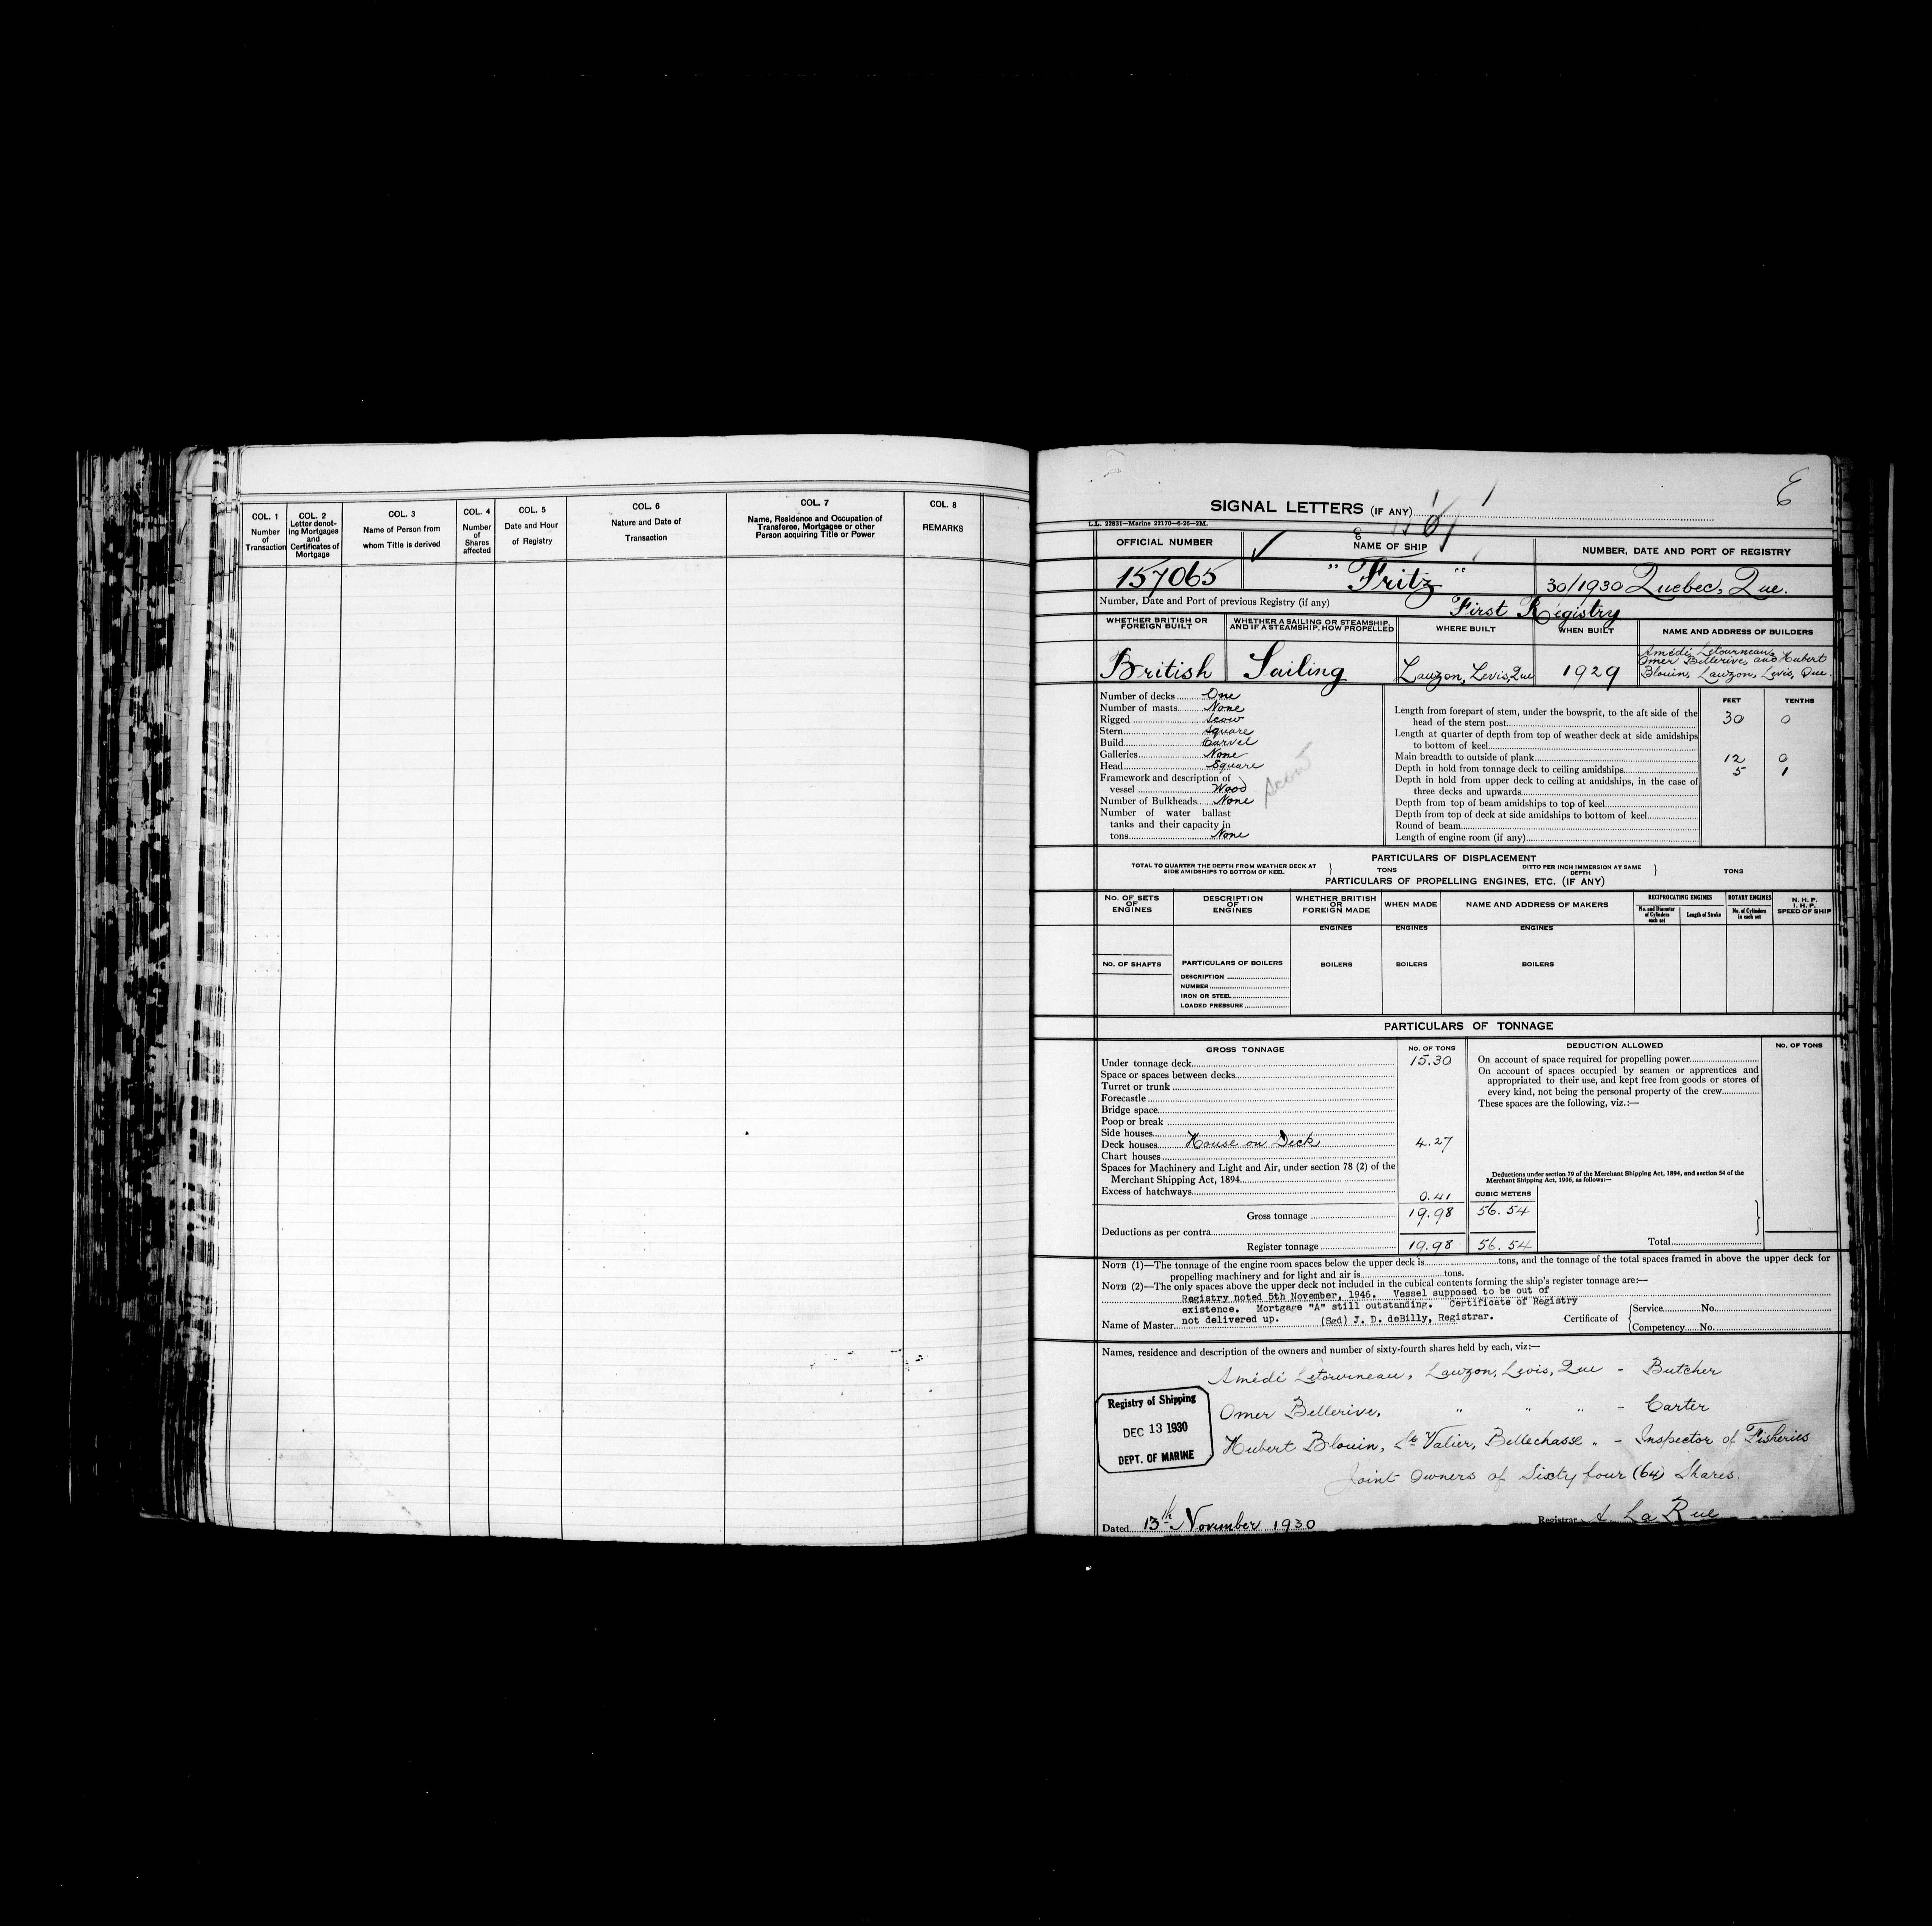 COL. 1
Number
of
Transaction
COL. 2
Letter denot-
ing Mortgages
and
Certificates of
Mortgage
COL. 3
Name of Person from
whom Title is derived
COL. 4
Number
of
Shares
affected
COL. 5
Date and Hour
of Registry
COL. 6
Nature and Date of
Transaction
COL. 7
Name, Residence and Occupation of
Transferee, Mortgagee or other
Person acquiring Title or Power
COL. 8
REMARKS
SIGNAL LETTERS (IF ANY)
L.L. 22831—Marine 22170—6-26—2M.
OFFICIAL NUMBER
NAME OF SHIP
NUMBER, DATE AND PORT OF REGISTRY
157065
"Fritz"
30/1930 Quebec, Que.
Number, Date and Port of previous Registry (if any) First Registry
WHETHER BRITISH OR
FOREIGN BUILT
WHETHER A SAILING OR STEAMSHIP
AND IF A STEAMSHIP, HOW PROPELLED
WHERE BUILT
WHEN BUILT
NAME AND ADDRESS OF BUILDERS
British
Sailing
Lauzon, Levis, Que
1929
Amédé Letourneau,
Omer Bellerive, and Hubert
Blouin, Lauzon, Levis, Que.
Number of decks One
Number of masts None
Rigged Scow
Stern Square
Build Carvel
Galleries None
Head Square
Framework and description of
vessel Wood
Number of Bulkheads None
Number of water ballast
tanks and their capacity in
tons None
Scow
FEET
TENTHS
Length from forepart of stem, under the bowsprit, to the aft side of the
head of the stern post 30 0
Length at quarter of depth from top of weather deck at side amidships
to bottom of keel
Main breadth to outside of plank 12 0
Depth in hold from tonnage deck to ceiling amidships 5 1
Depth in hold from upper deck to ceiling at amidships, in the case of
three decks and upwards
Depth from top of beam amidships to top of keel
Depth from top of deck at side amidships to bottom of keel
Round of beam
Length of engine room (if any)
PARTICULARS OF DISPLACEMENT
TOTAL TO QUARTER THE DEPTH FROM WEATHER DECK AT
SIDE AMIDSHIPS TO BOTTOM OF KEEL
TONS
DITTO PER INCH IMMERSION AT SAME
DEPTH
TONS
PARTICULARS OF PROPELLING ENGINES, ETC. (IF ANY)
NO. OF SETS
OF
ENGINES
DESCRIPTION
OF
ENGINES
WHETHER BRITISH
OR
FOREIGN MADE
WHEN MADE
NAME AND ADDRESS OF MAKERS
RECIPROCATING ENGINES
No. and Diameter
of Cylinders
each set
Length of Stroke
ROTARY ENGINES
No. of Cylinders
in each set
N. H. P.
I. H. P.
SPEED OF SHIP
ENGINES
ENGINES
ENGINES
NO. OF SHAFTS
PARTICULARS OF BOILERS
BOILERS
BOILERS
BOILERS
DESCRIPTION
NUMBER
IRON OR STEEL
LOADED PRESSURE
PARTICULARS OF TONNAGE
GROSS TONNAGE
NO. OF TONS
Under tonnage deck 15.30
Space or spaces between decks
Turret or trunk
Forecastle
Bridge space
Poop or break
Side houses
Deck houses House on Deck 4.27
Chart houses
Spaces for Machinery and Light and Air, under section 78 (2) of the
Merchant Shipping Act, 1894
Excess of hatchways 0.41
CUBIC METERS
Gross tonnage 19.98 56.54
Deductions as per contra
Register tonnage 19.98 56.54
DEDUCTION ALLOWED
NO. OF TONS
On account of space required for propelling power
On account of spaces occupied by seamen or apprentices and
appropriated to their use, and kept free from goods or stores of
every kind, not being the personal property of the crew
These spaces are the following, viz.:—
Deductions under section 79 of the Merchant Shipping Act, 1894, and section 54 of the
Merchant Shipping Act, 1906, as follows:—
Total
NOTE (1)—The tonnage of the engine room spaces below the upper deck is tons, and the tonnage of the total spaces framed in above the upper deck for
propelling machinery and for light and air is tons.
NOTE (2)—The only spaces above the upper deck not included in the cubical contents forming the ship's register tonnage are:—
Registry noted 5th November, 1946. Vessel supposed to be out of
existence. Mortgage "A" still outstanding. Certificate of Registry
not delivered up. (Sgd) J. D. deBilly, Registrar.
Name of Master
Certificate of
Service No.
Competency No.
Names, residence and description of the owners and number of sixty-fourth shares held by each, viz:—
Amédé Letourneau, Lauzon, Levis, Que - Butcher
Omer Bellerive, " " " - Carter
Hubert Blouin, St. Valier, Bellechasse " - Inspector of Fisheries
Joint Owners of Sixty four (64) Shares.
Registry of Shipping
DEC 13 1930
DEPT. OF MARINE
Dated 13th November 1930
Registrar A. La Rue